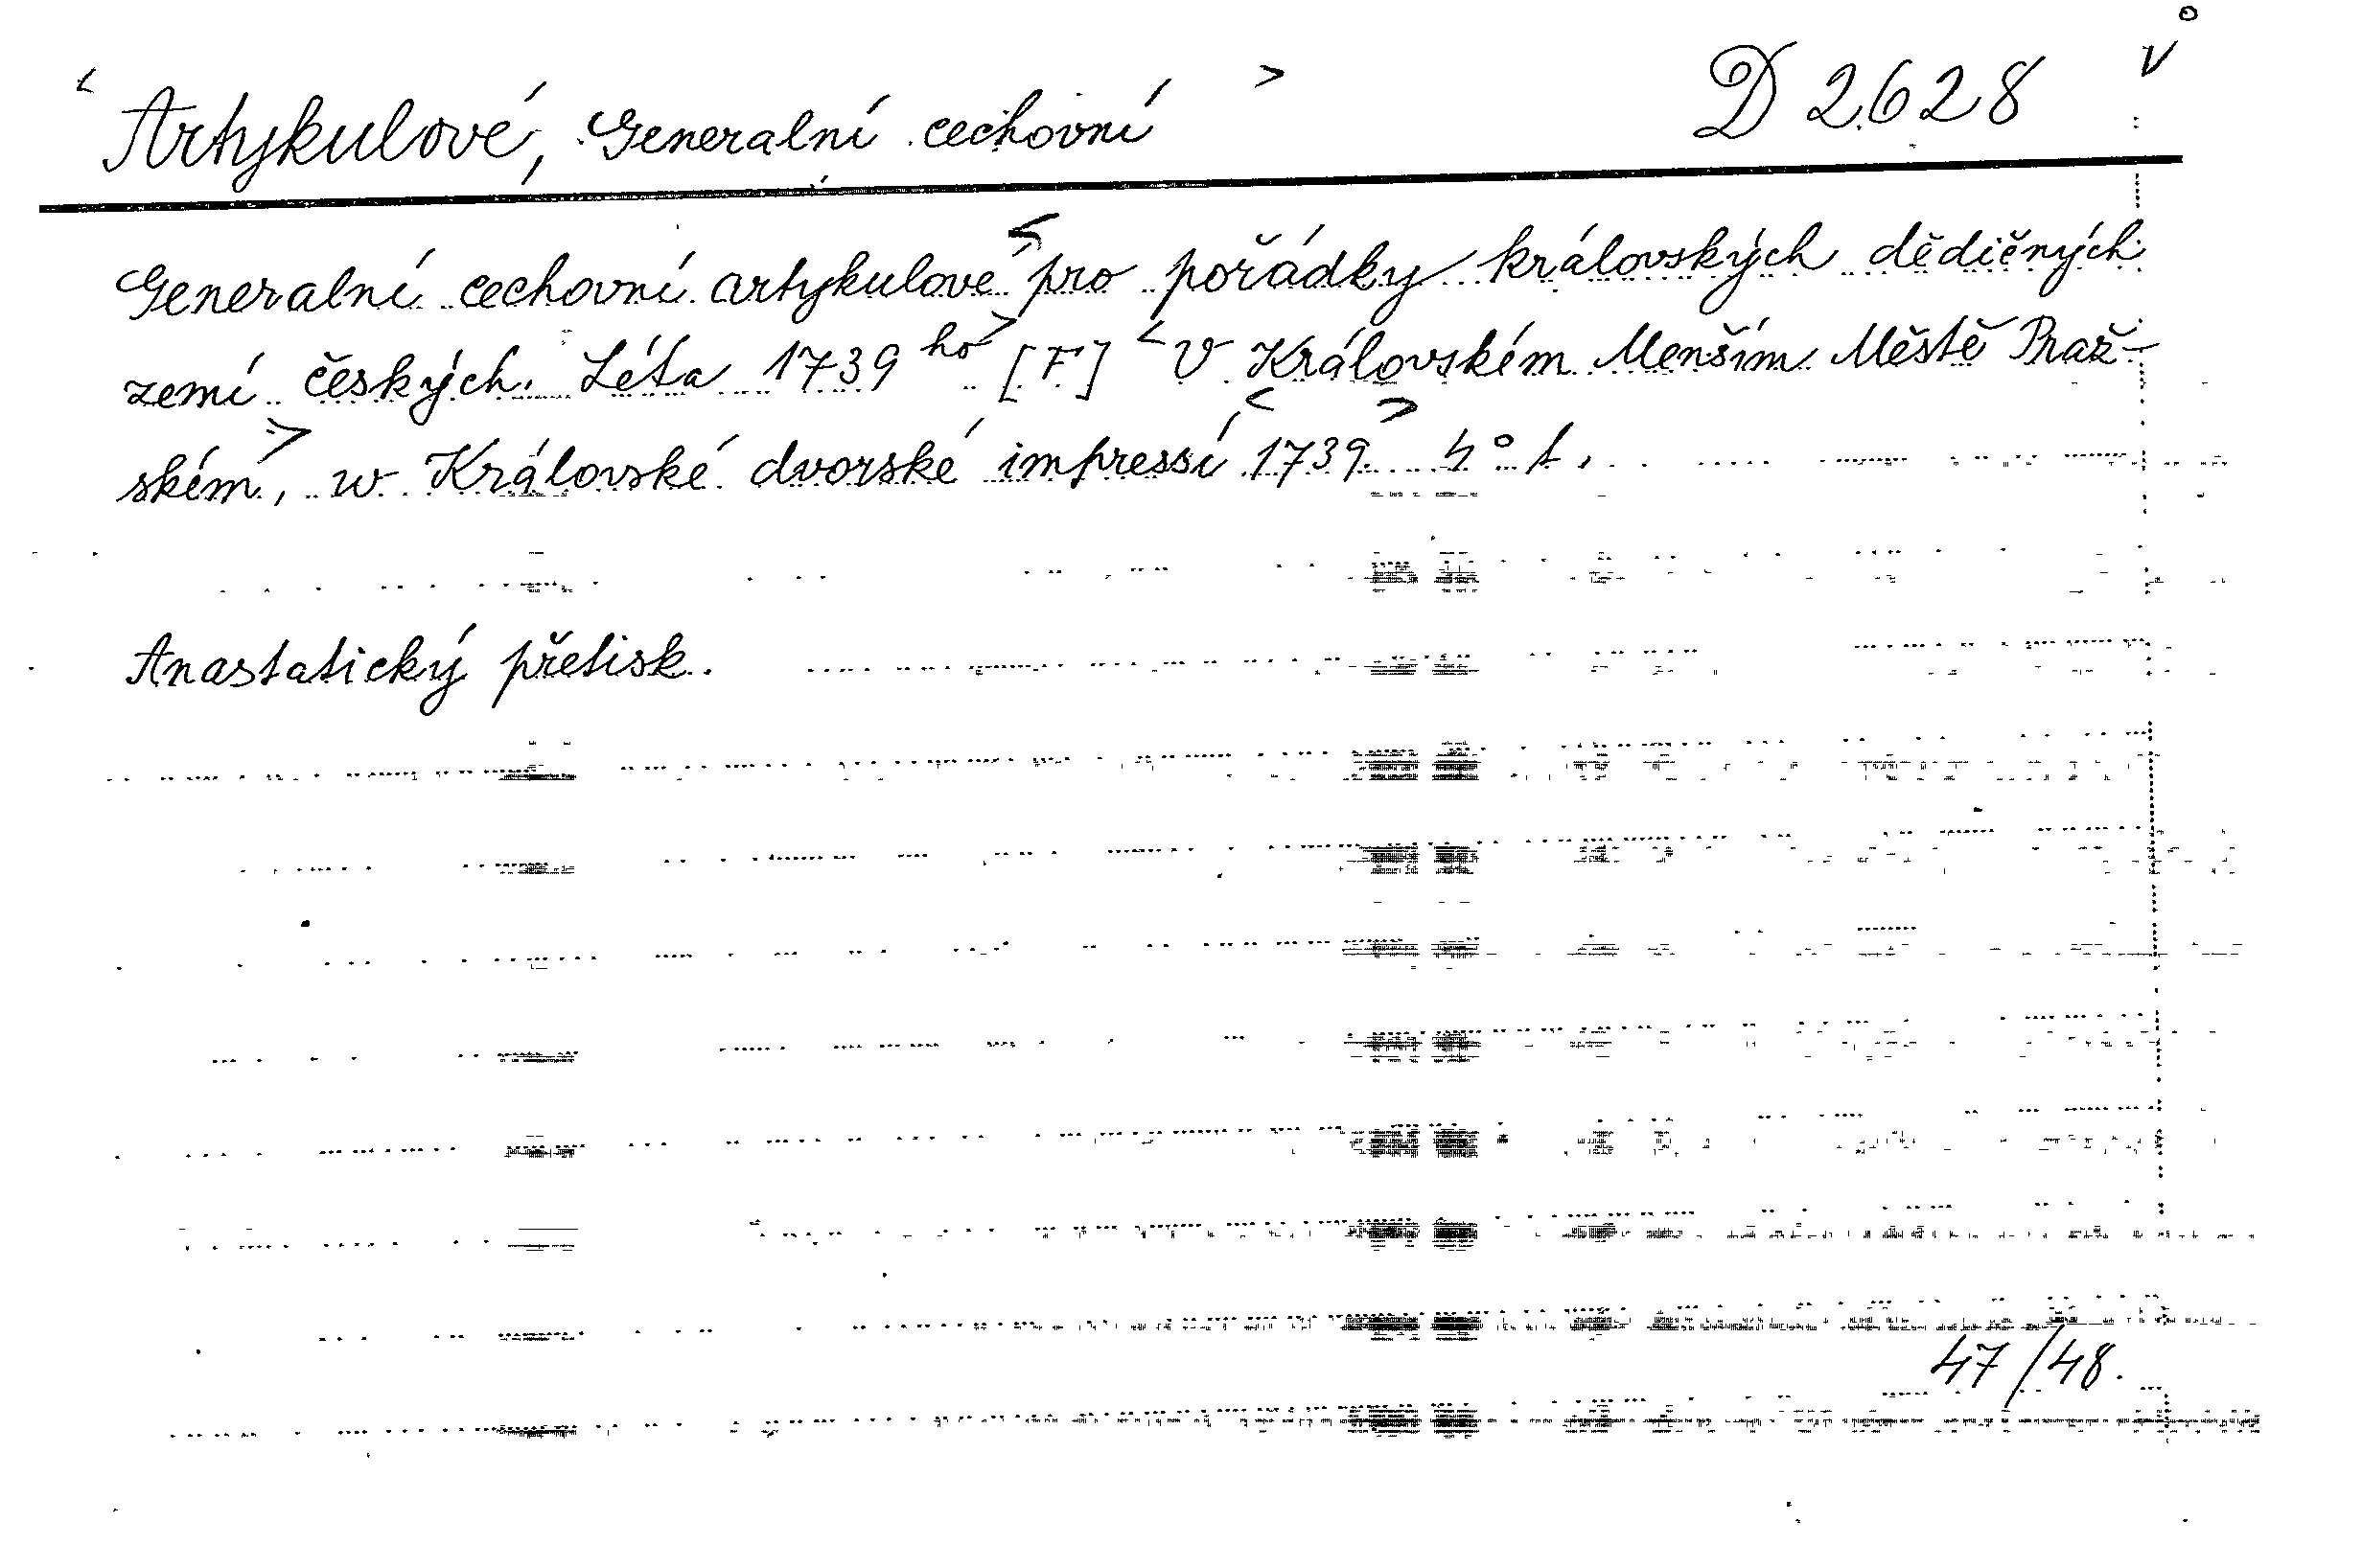 <Artykulové, Generalní cechovní> D 2.628 v
Generalní cechovní artykulové <pro pořádky královských dědičných
zemí českých. Léta 1739 ho> [F] <V Královském Menším Městě Praž-
ském>, w Královské dvorské impressí <1739> 4° f.
Anastatický přetisk.
47/48.